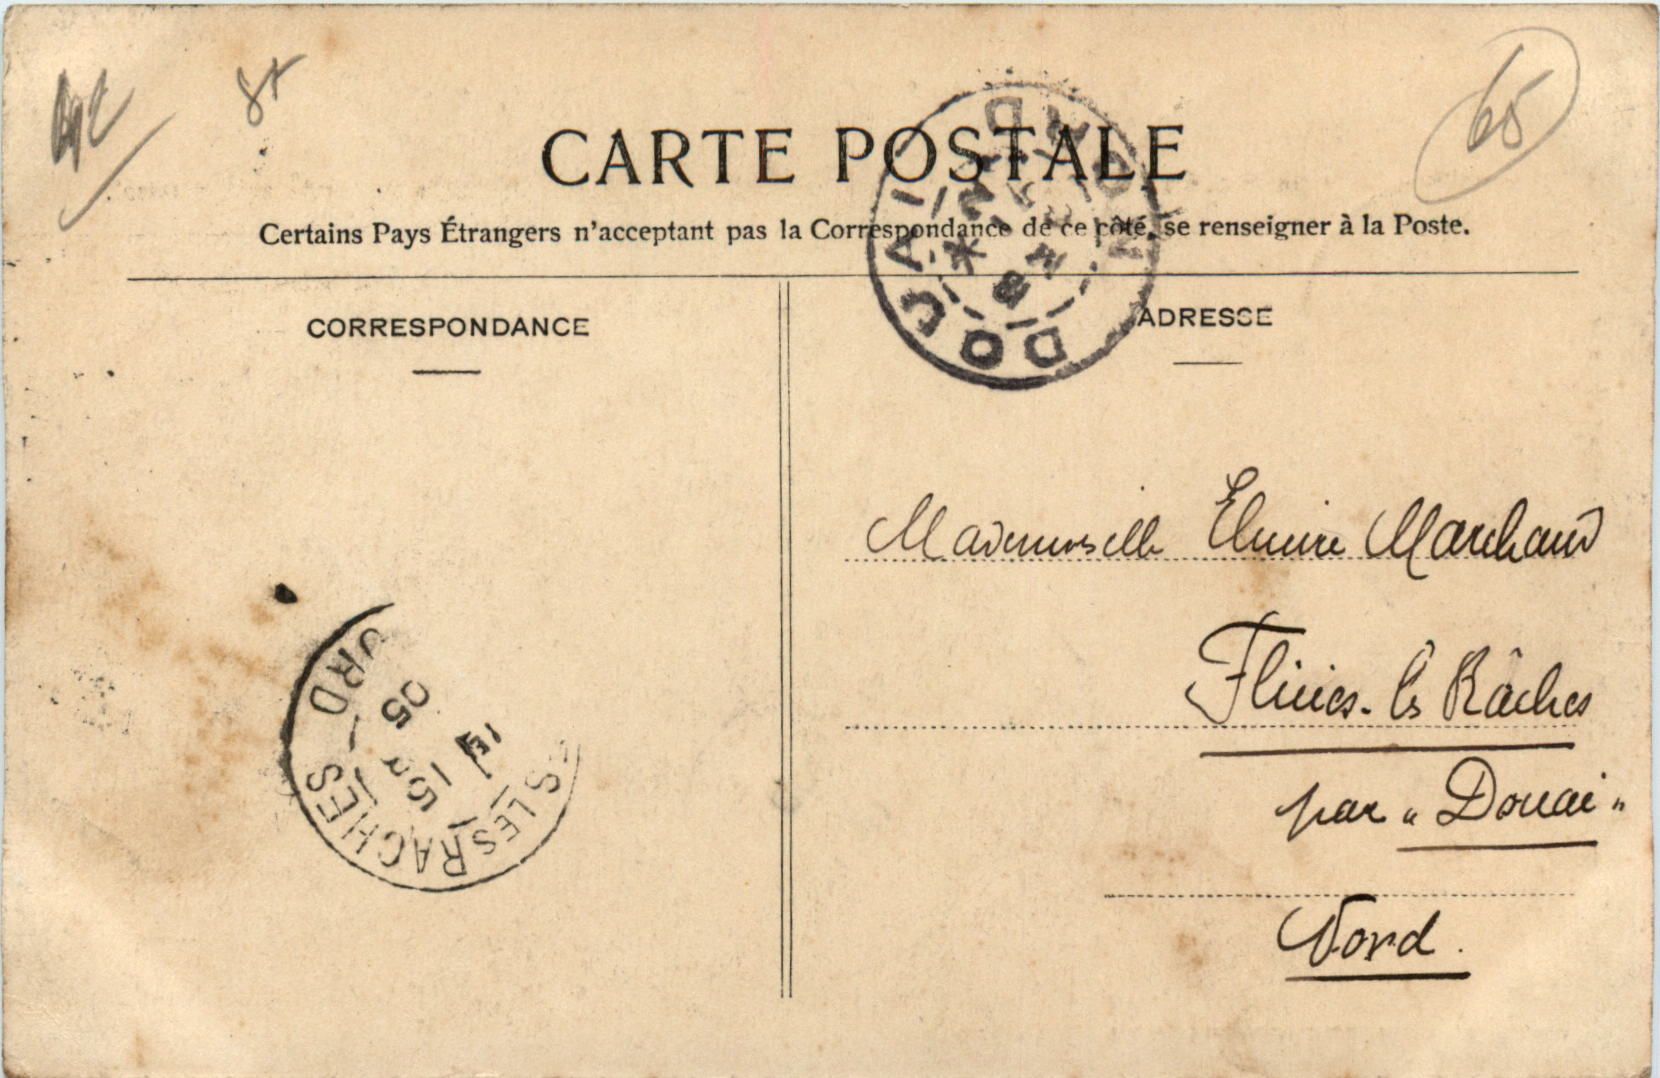 65
CARTE POSTALE
Certains Pays Étrangers n'acceptant pas la Correspondance de ce côté, se renseigner à la Poste.
DOUAI
CORRESPONDANCE
ADRESSE
Mademoiselle Elmire Marchand
Flines-lès Râches
par "Douai"
Nord.
S LES RACHES
ORD
15
05